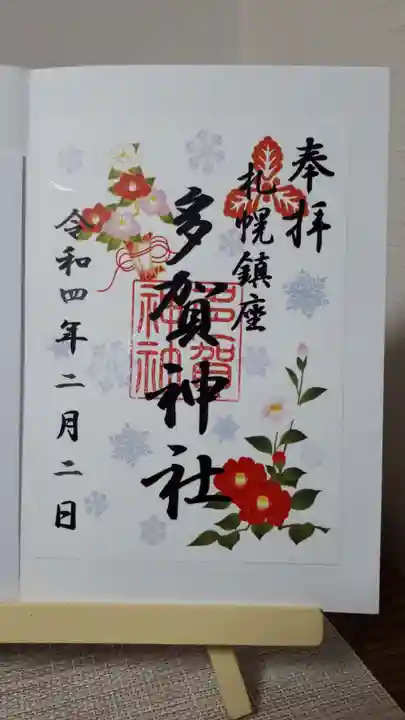 奉拝
札幌鎮座
多賀神社
多賀
神社
令和四年二月二日